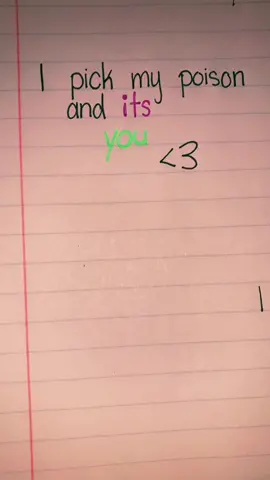 I pick my poison
and its
you
<3